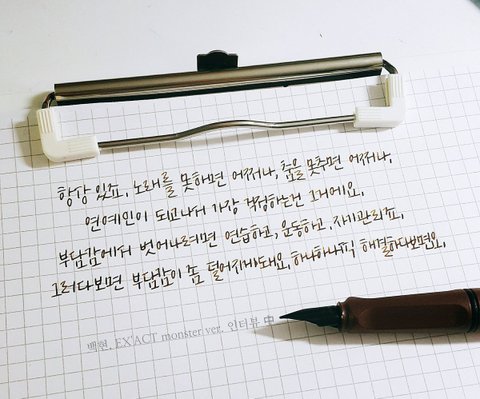 항상 있죠. 노래를 못하면 어쩌나, 춤을 못추면 어쩌나,
연예인이 되고나서 가장 걱정하는건 그거에요.
부담감에서 벗어나려면 연습하고, 운동하고, 자기관리죠.
그러다보면 부담감이 좀 덜어지게돼요, 하나하나씩 해결하다보면요.
백현, EX'ACT monster ver. 인터뷰 中